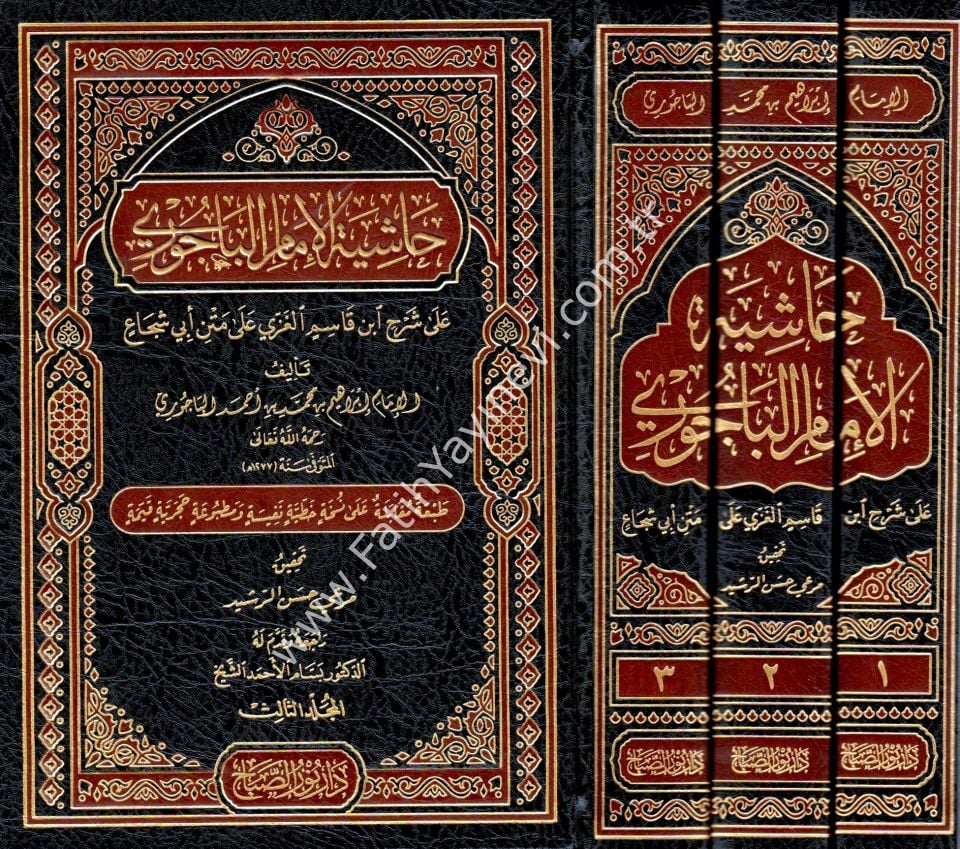 حاشية الإمام الباجوري
على شرح ابن قاسم الغزي على متن أبي شجاع
تأليف
الإمام إبراهيم بن محمد بن أحمد الباجوري
رحمه الله تعالى
المتوفى سنة (١٢٧٧هـ)
طبعة على نسخة خطية نفيسة ومطبوعة حجرية قيمة
تحقيق
حسن الرشيد
الدكتور بسام الأحمد الشيخ
المجلد الثالث
دار نور الصباح
الإمام إبراهيم بن محمد الباجوري
حاشية
الإمام الباجوري
على شرح ابن قاسم الغزي على متن أبي شجاع
تحقيق
مرعي حسن الرشيد
٣ ٢ ١
دار نور الصباح دار نور الصباح دار نور الصباح
www.FatihYayinevi.com.tr